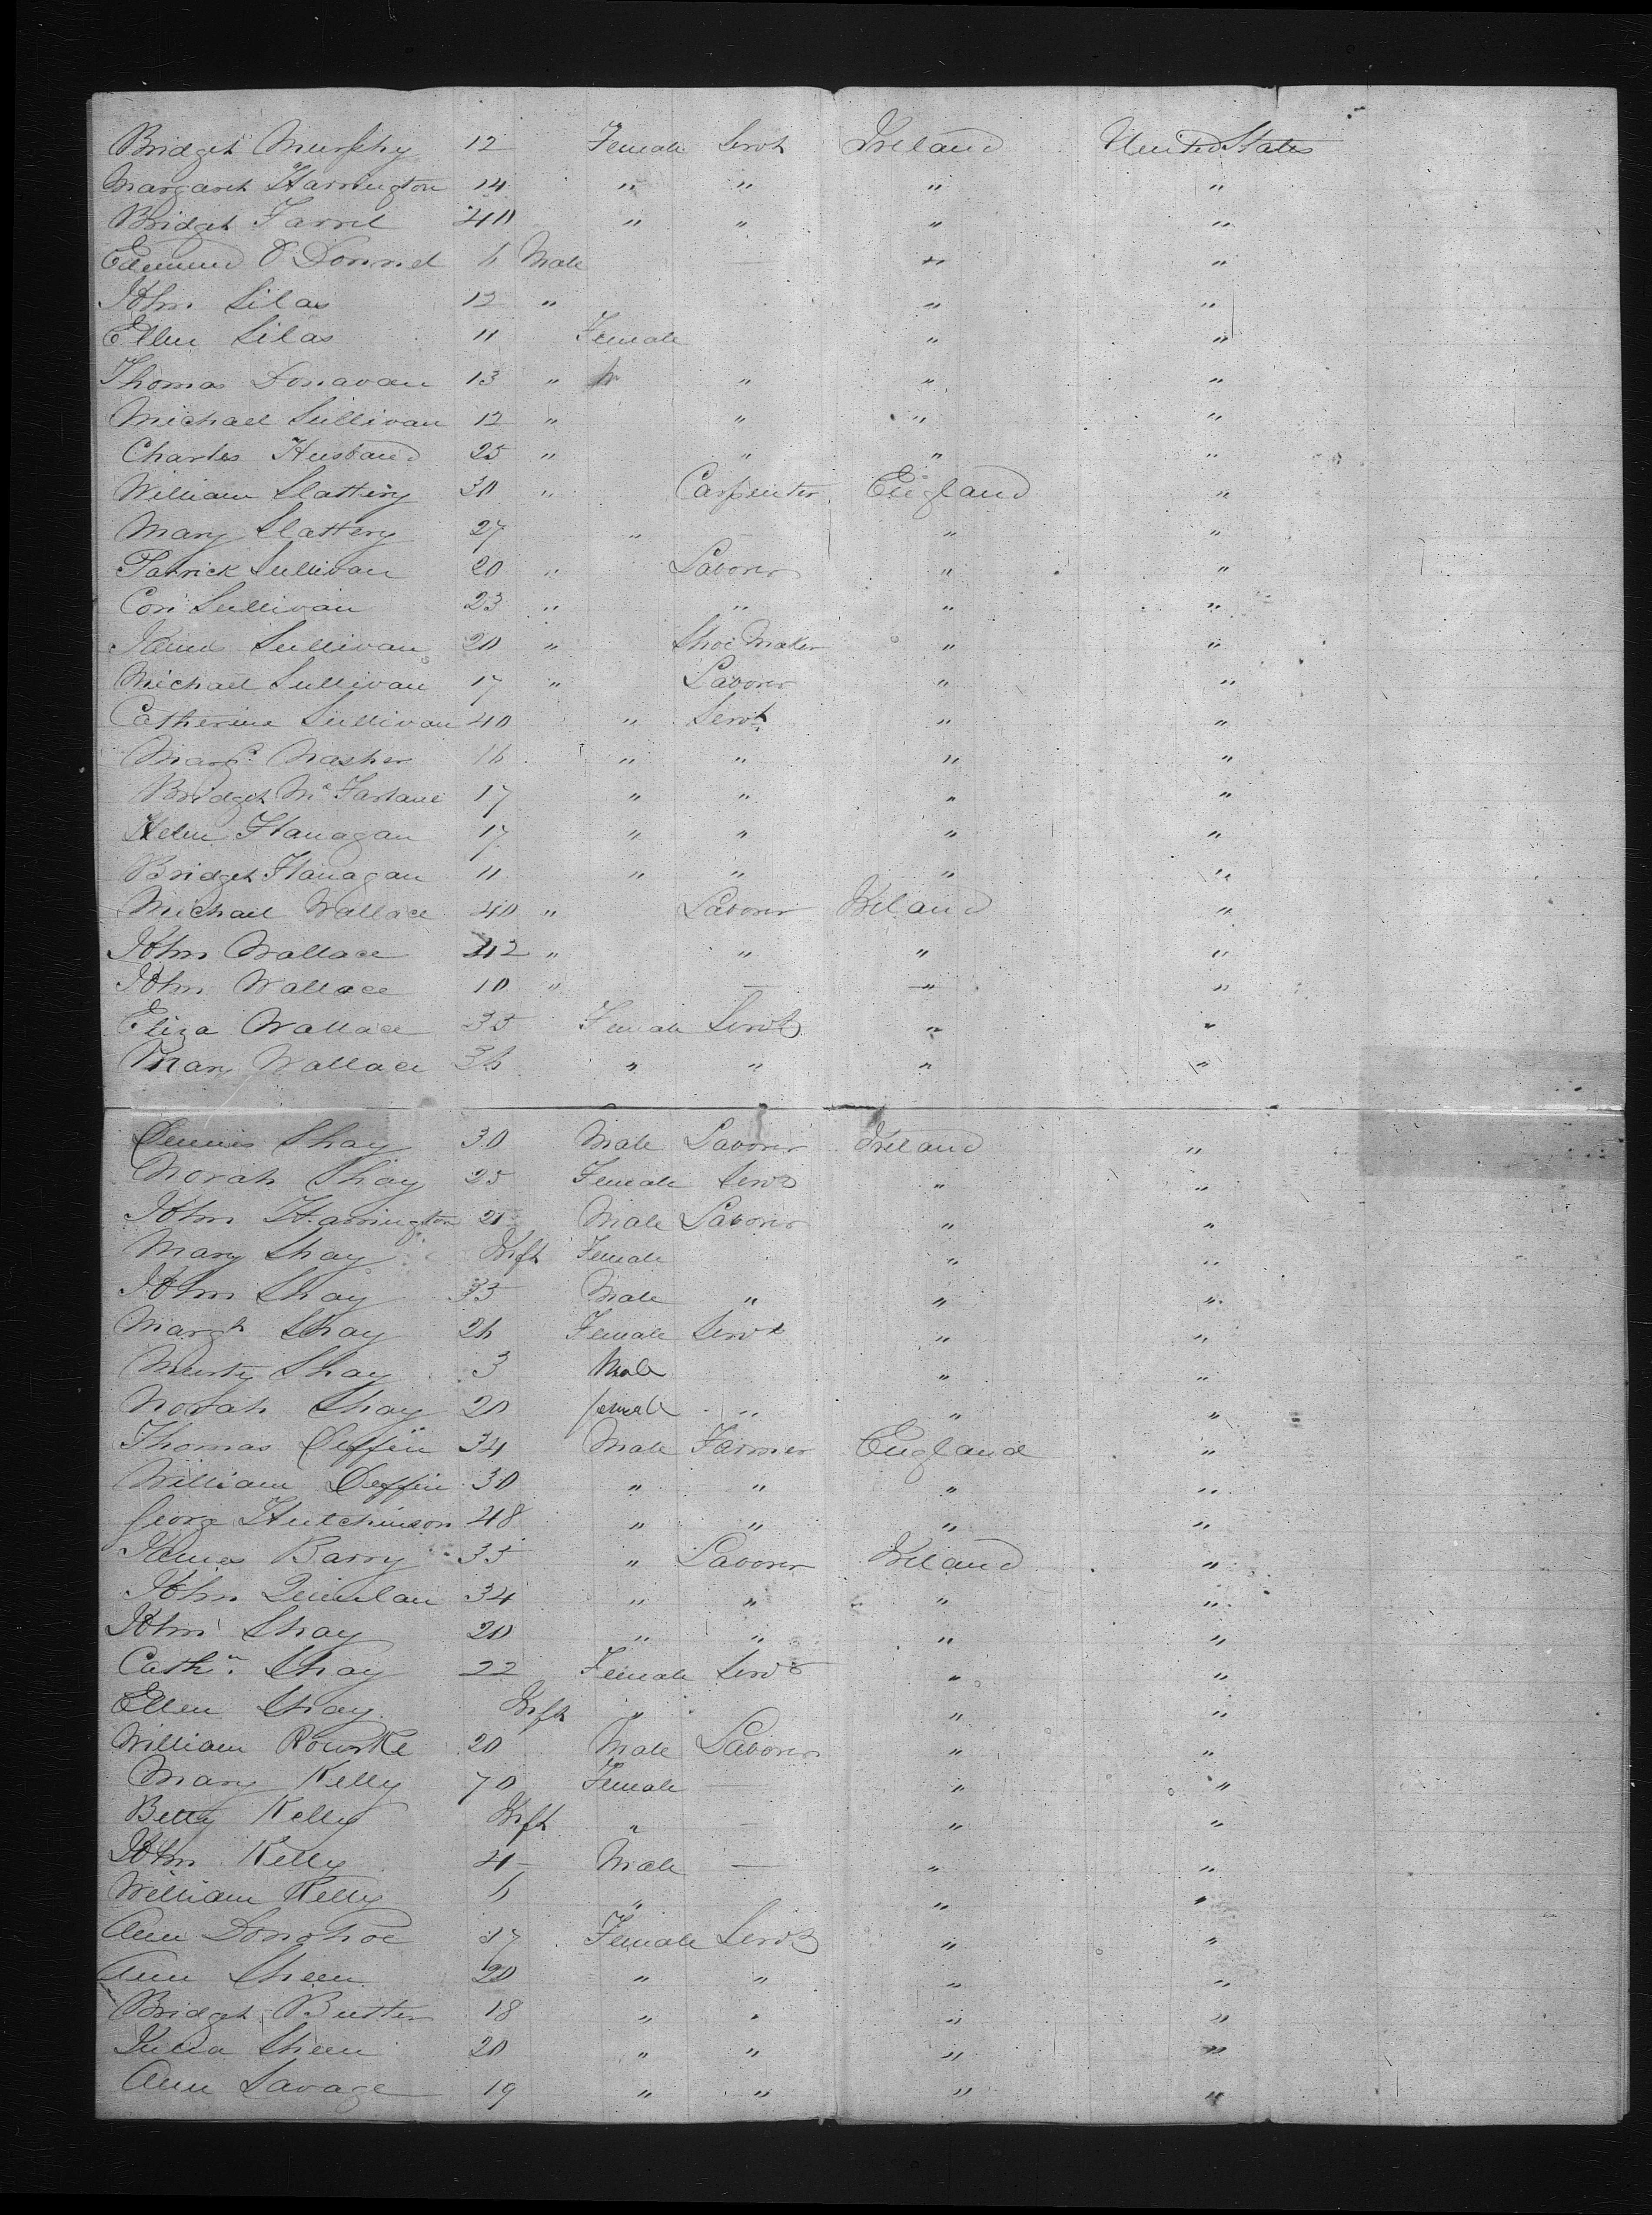 Bridget Murphy 12 Female Servt Ireland United States
Margaret Harrington 14 " " " "
Bridget Farrel 40 " " " "
Edmund O'Donnel 6 Male — " "
John Silas 12 " " "
Ellen Silas 11 Female " "
Thomas Donavan 13 " " " "
Michael Sullivan 12 " " " "
Charles Husband 25 " " " "
William Slattery 30 " Carpenter England "
Mary Slattery 27 " — " "
Patrick Sullivan 20 " Laborer " "
Con Sullivan 23 " " " "
James Sullivan 20 " Shoe Maker " "
Michael Sullivan 17 " Laborer " "
Catherine Sullivan 40 " Servt " "
Margt Nasher 16 " " " "
Bridget McFarlane 17 " " " "
Helen Flanagan 17 " " " "
Bridget Flanagan 11 " " " "
Michael Wallace 40 " Laborer Ireland "
John Wallace 42 " " " "
John Wallace 10 " — " "
Eliza Wallace 35 Female Servt " "
Mary Wallace 36 " " " "
Dennis Shay 30 Male Laborer Ireland "
Norah Shay 25 Female Servt " "
John Harrington 21 Male Laborer " "
Mary Shay Inft Female " "
John Shay 35 Male " " "
Margt Shay 26 Female Servt " "
Murty Shay 3 Male " "
Norah Shay 20 female " " "
Thomas Deffin 34 Male Farmer England "
William Deffin 30 " " " "
George Hutchinson 48 " " " "
James Barry 35 " Laborer Ireland "
John Quinlan 34 " " " "
John Shay 20 " " " "
Cathn Shay 22 Female Servt " "
Ellen Shay Inft " " "
William Rourke 20 Male Laborer " "
Mary Kelly 70 Female — " "
Betty Kelly Inft " — " "
John Kelly 4 Male — " "
William Kelly 6 " " "
Ann Donohoe 17 Female Servt " "
Ann Sheen 20 " " " "
Bridget Butler 18 " " " "
Julia Sheen 20 " " " "
Ann Savage 19 " " " "